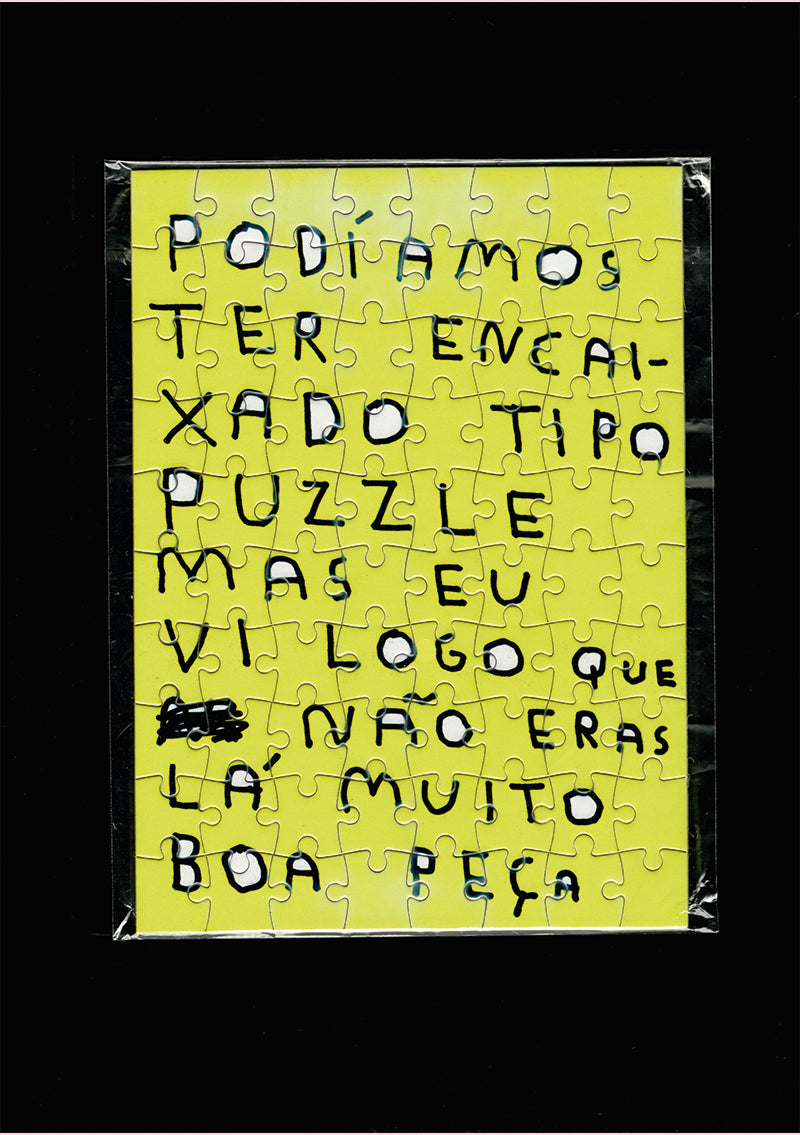 PODÍAMOS
TER ENCAI-
XADO TIPO
PUZZLE
MAS EU
VI LOGO QUE
NÃO ERAS
LÁ MUITO
BOA PEÇA